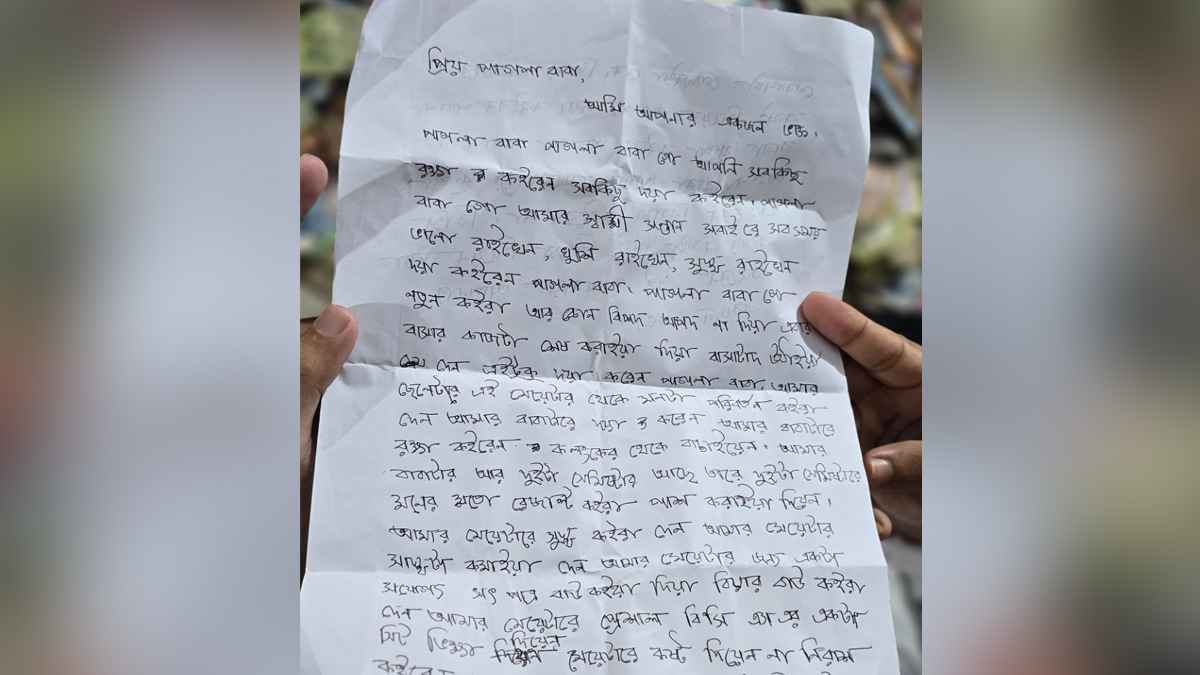 প্রিয় পাগলা বাবা,
আমি আপনার একজন ভক্ত।
পাগলা বাবা পাগলা বাবা গো আপনি সবকিছু
রক্ষা কইরেন সবকিছু দয়া কইরেন। পাগলা
বাবা গো আমার স্বামী সন্তান সবাইরে সবসময়
ভালো রাইখেন, খুশি রাইখেন, সুস্থ রাইখেন
দয়া কইরেন পাগলা বাবা। পাগলা বাবা গো
নতুন কইরা আর কোন বিপদ আপদ না দিয়া এবার
বাসার কাজটা শেষ করাইয়া দিয়া বাসাটাদ উঠাইয়া
দেন এইটুকু দয়া করেন পাগলা বাবা আমার
ছেলেটার এই মেয়েটার থেকে মনটা পরিবর্তন কইরা
দেন আমার বাবাটারে দয়া করেন আমার বাবাটারে
রক্ষা কইরেন কলংকের থেকে বাচাইয়েন। আমার
বাবাটার আর দুইটা সেমিষ্টার আছে তারে দুইটা সেমিষ্টারে
মনের মতো রেজাল্ট কইরা পাশ করাইয়া দিয়েন।
আমার মেয়েটারে সুস্থ কইরা দেন আমার মেয়েটার
কমাইয়া দেন আমার মেয়েটার জন্য একটা
সৎ পাত্র কইরা দিয়া বিয়ার কইরা
দেন আমার মেয়েটারে স্পেশাল বিসি এস এর একটা
সিট ভিক্ষা দিয়েন মেয়েটারে কষ্ট দিয়েন না নিরাশ
কইরেন